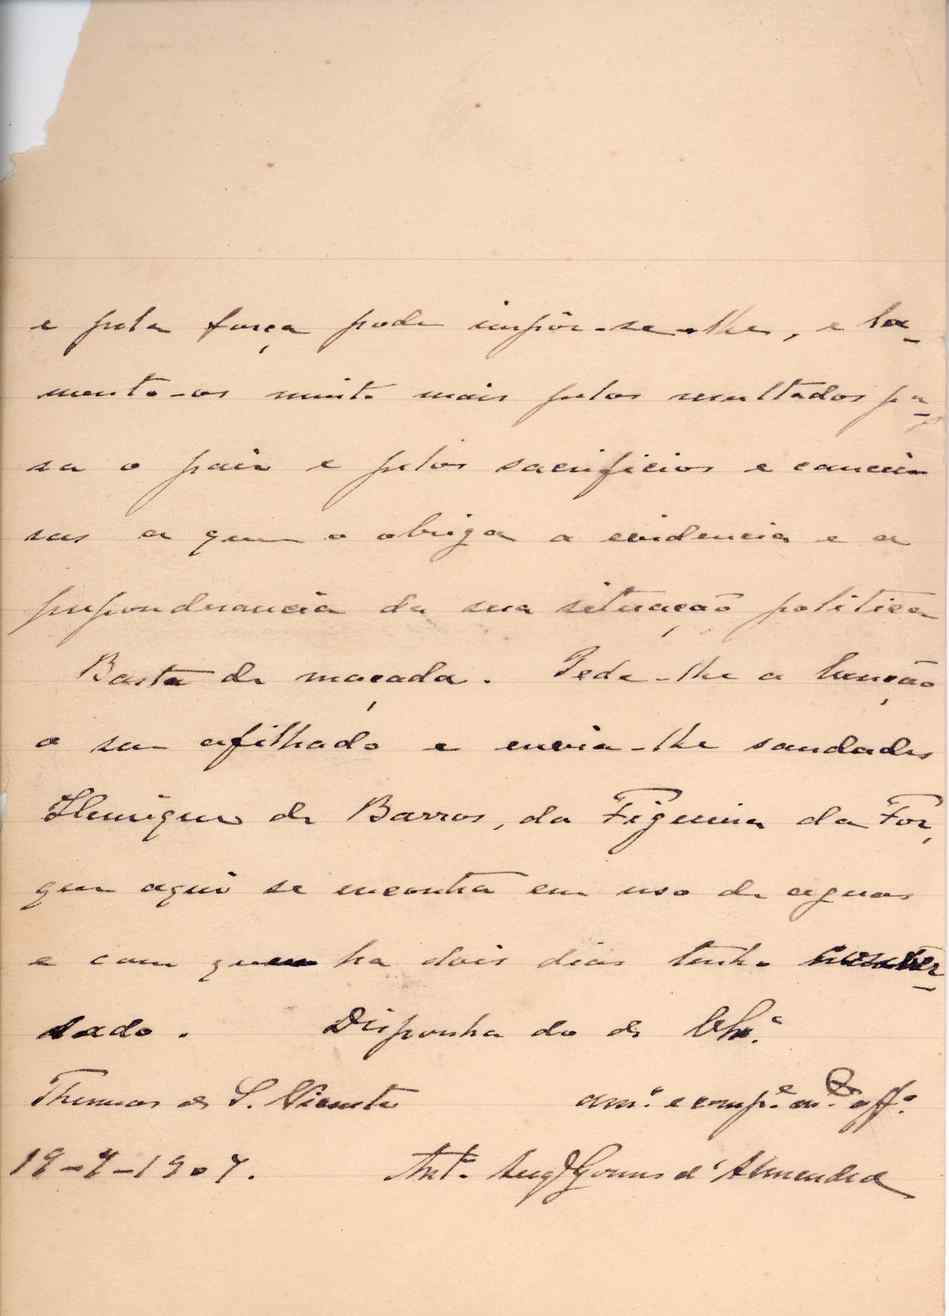 e pela força pode impôr-se-lhe, e la-
mento-os muito mais pelos resultados pa-
ra o paiz e pelos sacrificios e cancei-
ras a que o obriga a evidencia e a
preponderancia da sua situação politica
Basta de maçada. Pede-lhe a benção
o seu afilhado e envia-lhe saudades
Henrique de Barros, da Figueira da Foz,
que aqui se encontra em uso de aguas
e com quem ha dois dias tenho conver-
sado. Disponha do de V. Ex.ª
Thermas de S. Vicente am.º e comp.e m.to aff.º
19-7-1907. Ant.º Aug. Gomes d'Almendra